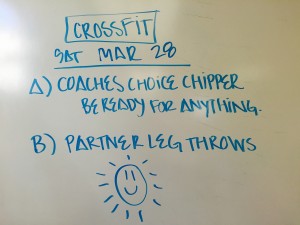 CROSSFIT
SAT MAR 28
A) COACHES CHOICE CHIPPER
BE READY FOR ANYTHING.
B) PARTNER LEG THROWS